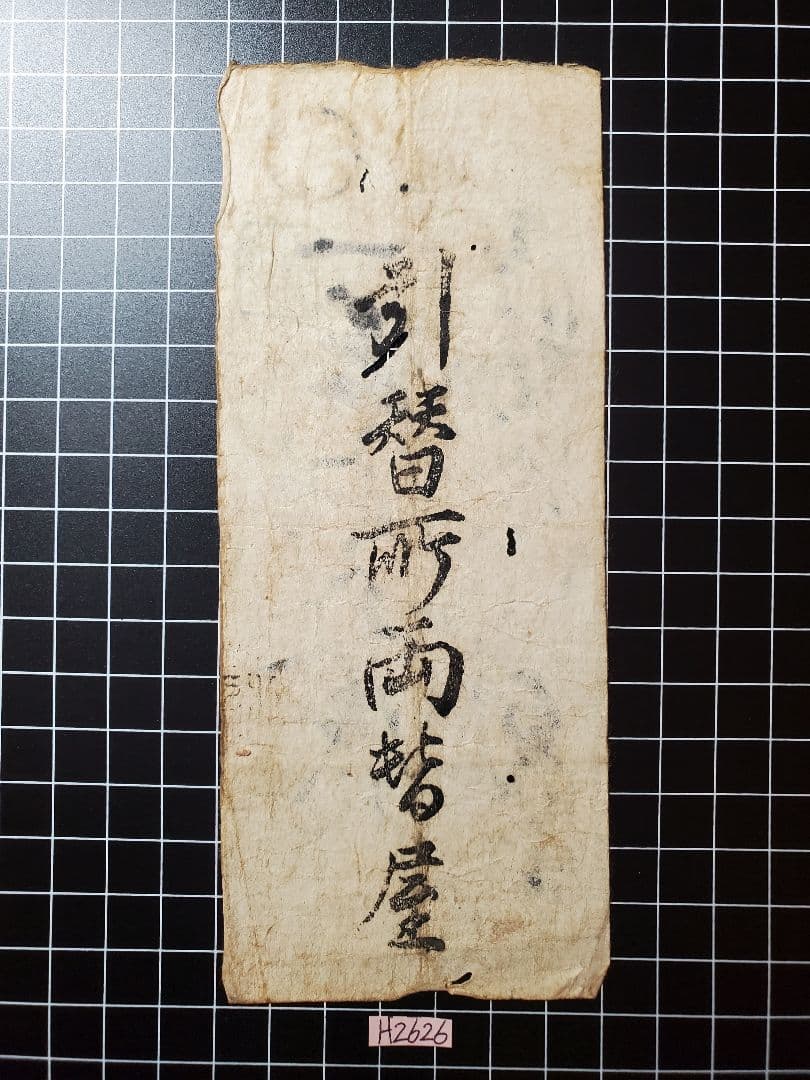 引替所両替屋
H2626